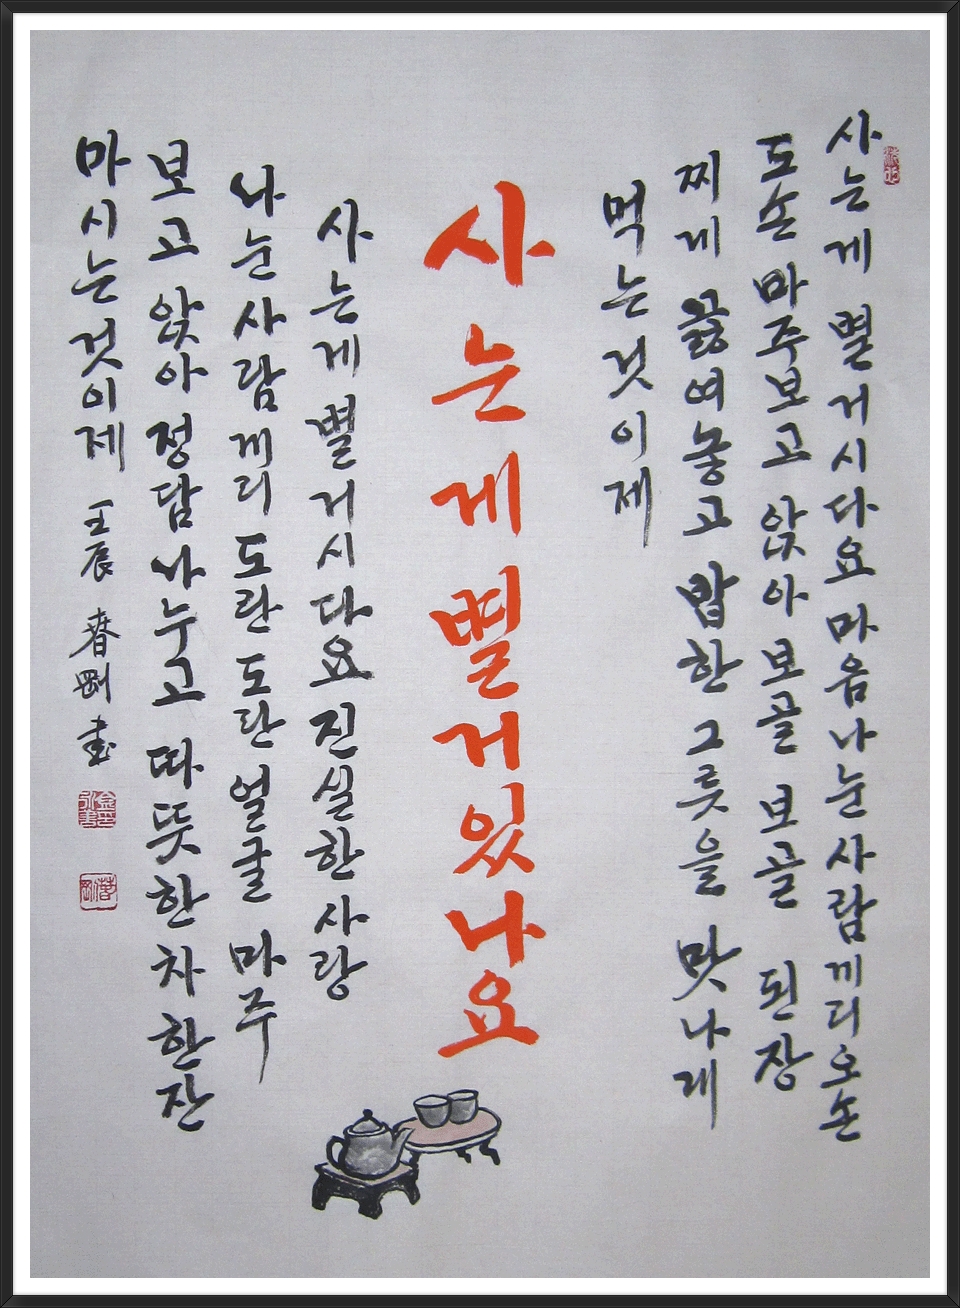 사는게 별거시다요 마음나눈사람끼리오손
도손 마주보고 앉아 보골 보골 된장
찌게 끓여놓고 밥한그릇을 맛나게
먹는것이제
사는게별거있나요
사는게 별거시다요 진실한사랑
나눈사람끼리도란도란얼굴 마주
보고 앉아정담나누고 따뜻한차한잔
마시는것이제 壬辰 春剛書